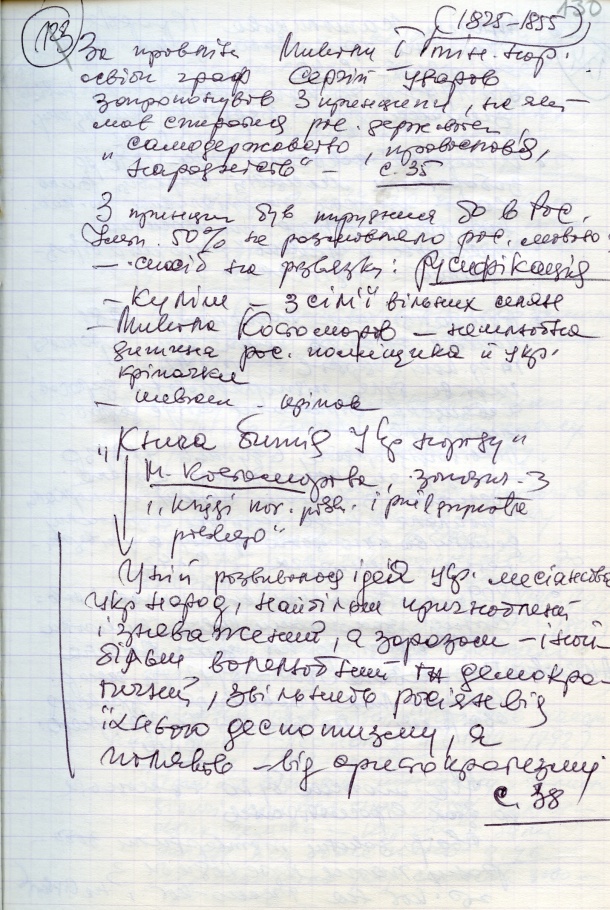 (1825–1855) 130
133
За правління Миколи І мін. нар.
освіти граф Сергій Уваров
запропонував 3 принципи, на які
мав спиратися рос. державність,
„самодержавство, православ'я,
народність“ – с. 35
3 принцип був труднення бо в Рос.
імп. 50% не розмовляло рос. мовою
– спосіб на розвязку: Русифікація
– Куліш – з сім'ї вільних селян
– Микола Костомаров – нешлюбна
дитина рос. поміщика й укр.
кріпачки
– Шевченко – кріпак
„Книга битія укр народу“
М. Костомарова, запозич. з
„Книги пол. і пілігримства
польського“
У ній розвивалося ідея укр. месіанства
укр народ, найбільш пригноблений
і зневажений, а заразом – і най-
більш волелюбний та демокра-
тичний, звільнить росіян від
їхнього деспотизму, а
поляків – від аристократизму
с. 38